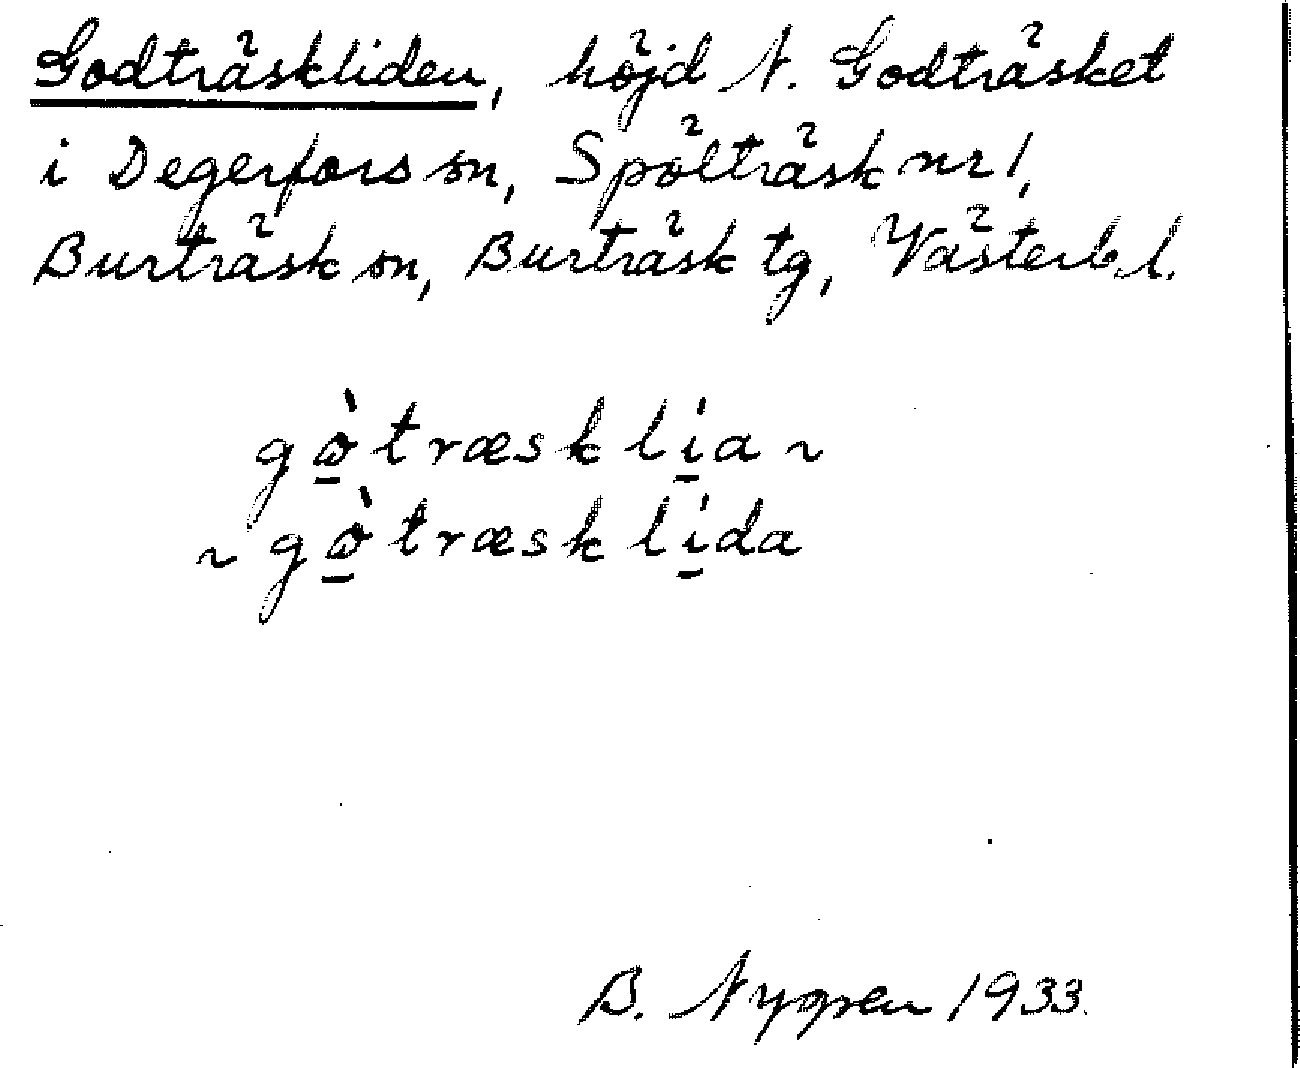 Godträskliden, höjd N. Godträsket
i Degerfors sn, Spölträsk nr 1,
Burträsk sn, Burträsk tg, Västerb. l.
gø̲̀træsk lí̲a ~
~ gø̲̀træsk lí̲da
B. Nygren 1933.